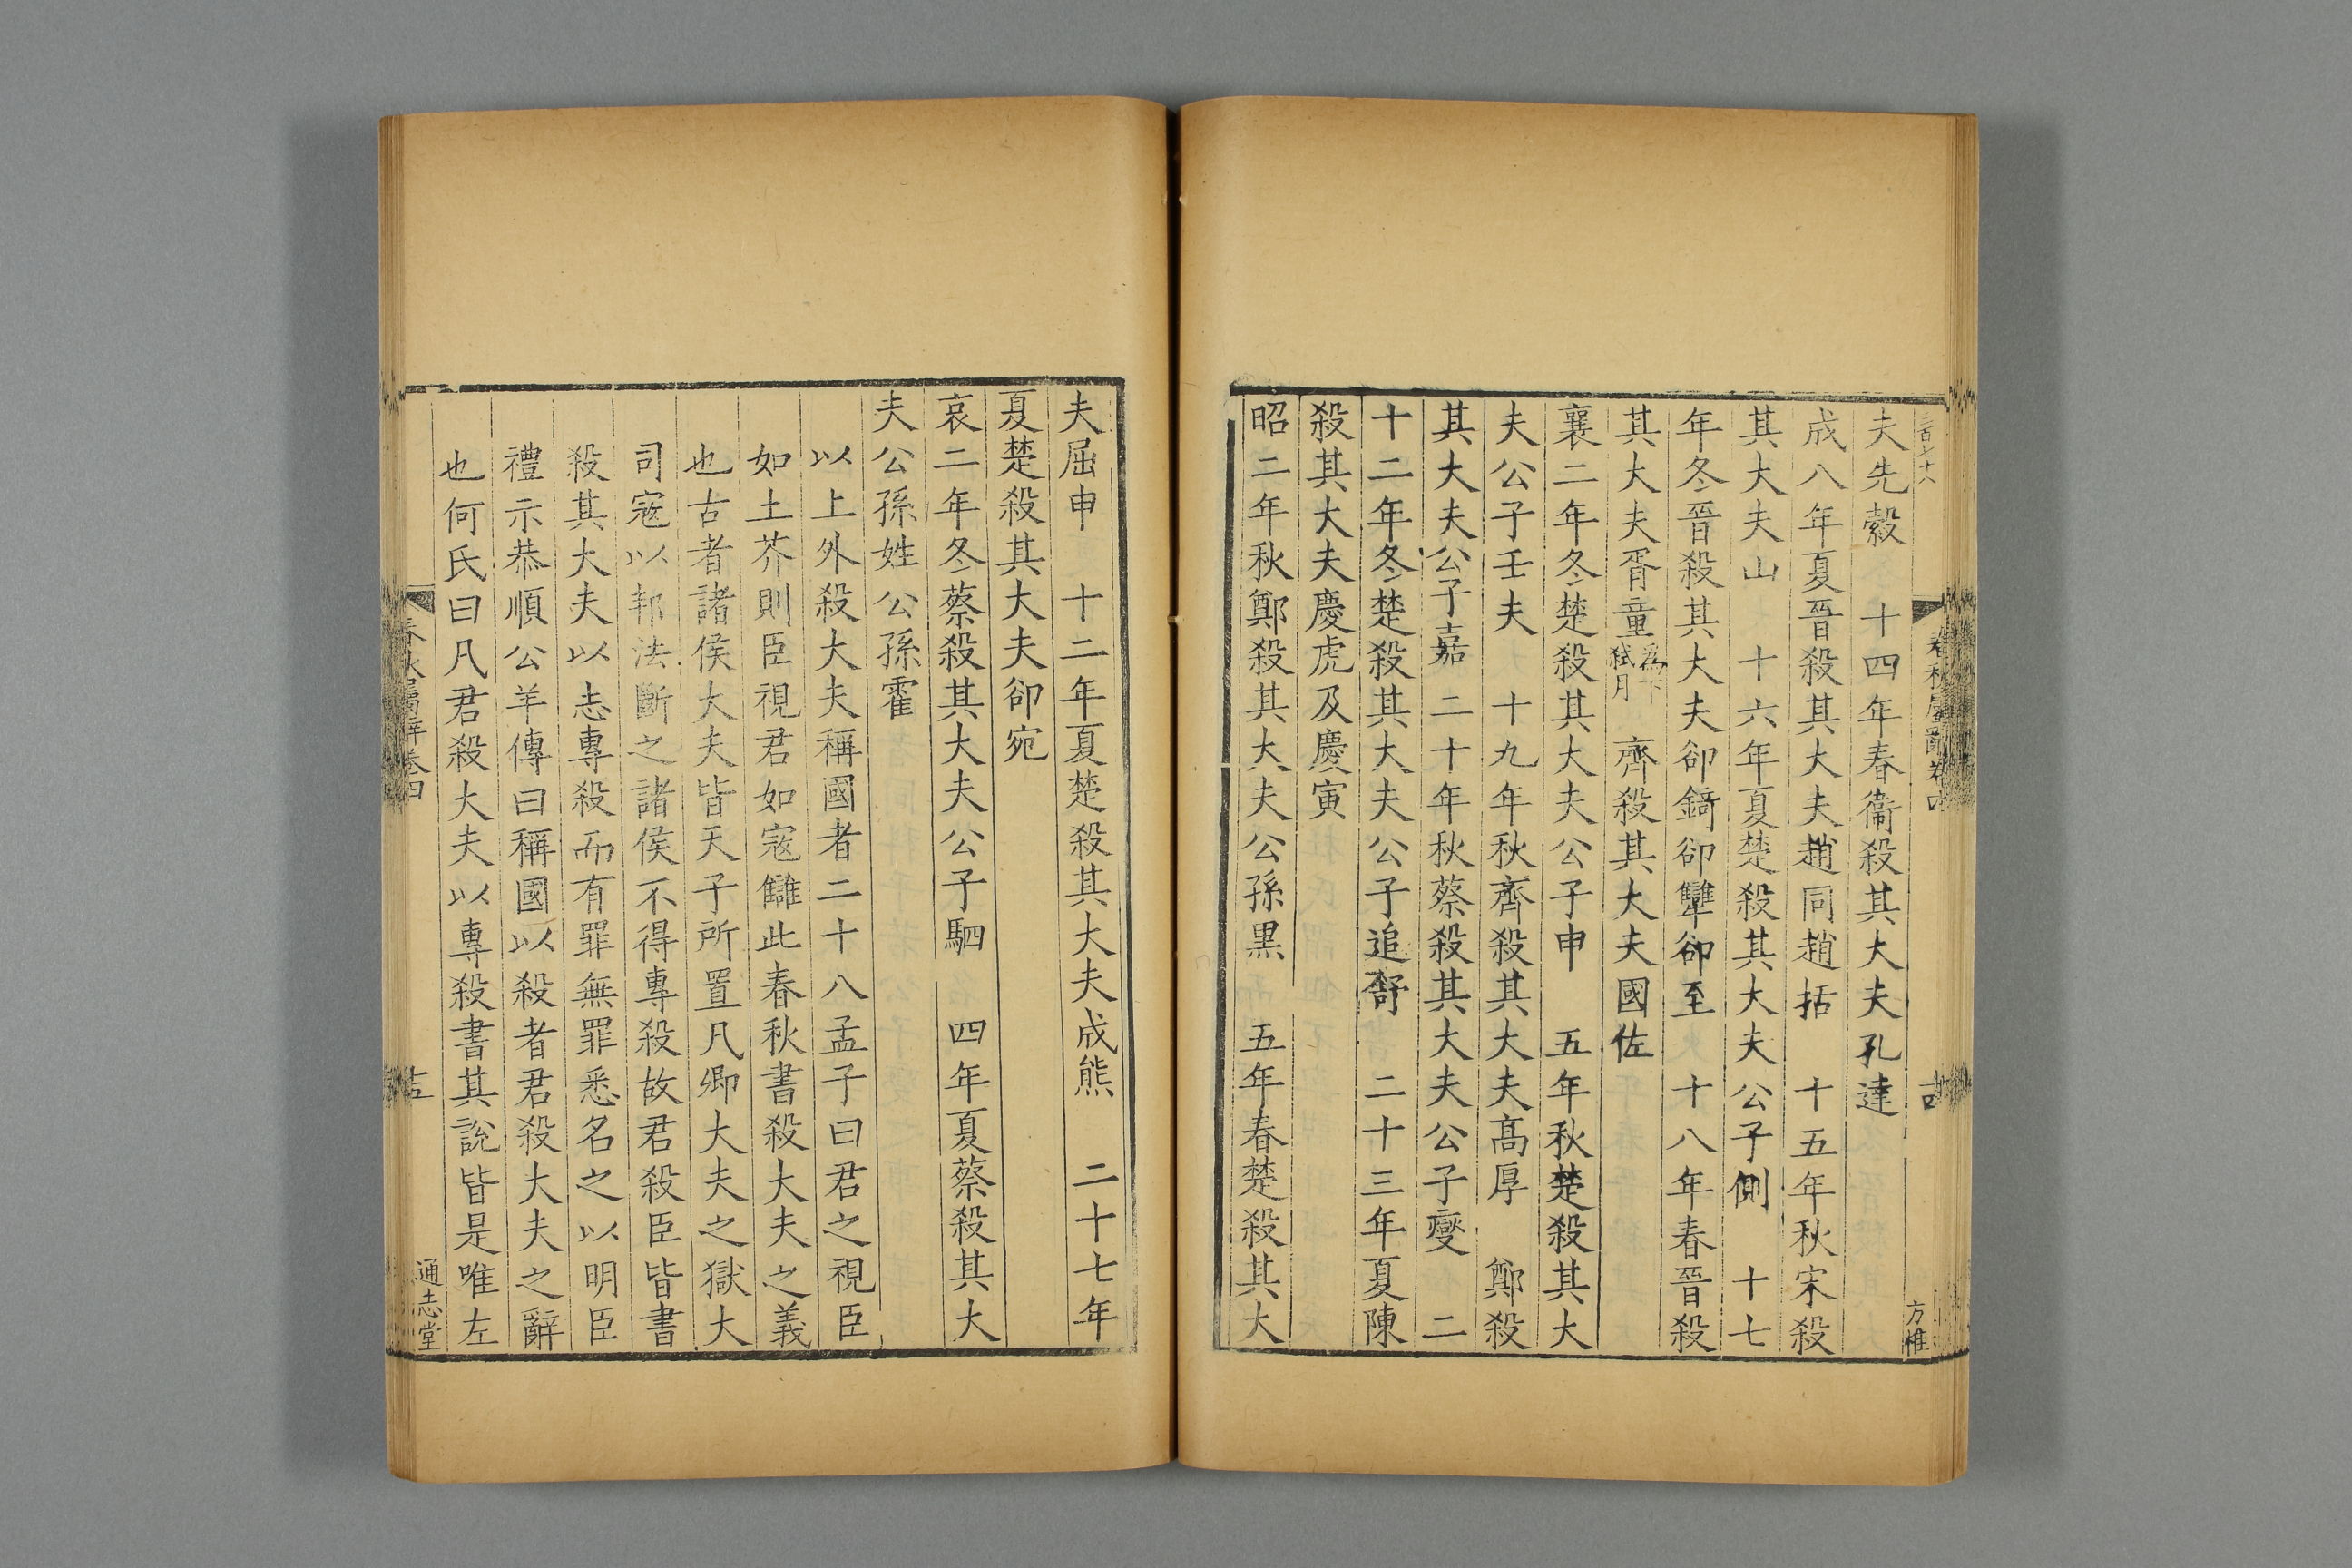 三百七十八
春秋屬辭卷四
古
方惟
夫先縠 十四年春衞殺其大夫孔達
成八年夏晉殺其大夫趙同趙括 十五年秋宋殺
其大夫山 十六年夏楚殺其大夫公子側 十七
年冬晉殺其大夫郤錡郤犨郤至 十八年春晉殺
其大夫胥童為下弒月 齊殺其大夫國佐
襄二年冬楚殺其大夫公子申 五年秋楚殺其大
夫公子壬夫 十九年秋齊殺其大夫高厚 鄭殺
其大夫公子嘉 二十年秋蔡殺其大夫公子燮 二
十二年冬楚殺其大夫公子追舒 二十三年夏陳
殺其大夫慶虎及慶寅
昭二年秋鄭殺其大夫公孫黑 五年春楚殺其大
夫屈申 十二年夏楚殺其大夫成熊 二十七年
夏楚殺其大夫郤宛
哀二年冬蔡殺其大夫公子駟 四年夏蔡殺其大
夫公孫姓公孫霍
以上外殺大夫稱國者二十八孟子曰君之視臣
如土芥則臣視君如寇讎此春秋書殺大夫之義
也古者諸侯大夫皆天子所置凡卿大夫之獄大
司寇以邦法斷之諸侯不得專殺故君殺臣皆書
殺其大夫以志專殺而有罪無罪悉名之以明臣
禮示恭順公羊傳曰稱國以殺者君殺大夫之辭
也何氏曰凡君殺大夫以專殺書其說皆是唯左
春秋屬辭卷四
通志堂